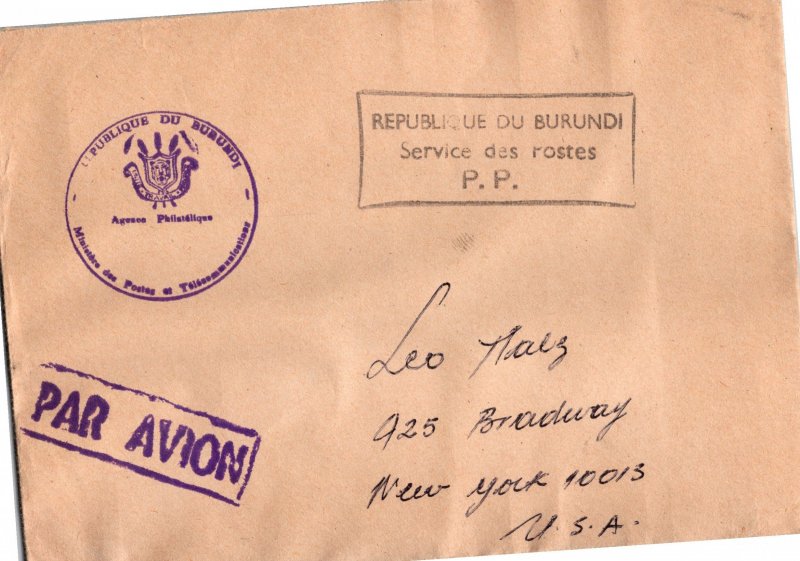 REPUBLIQUE DU BURUNDI
Agence Philatélique
Ministère des Postes et Télécommunications
REPUBLIQUE DU BURUNDI
Service des rostes
P. P.
PAR AVION
Leo
925 Bradway
New York 10013
U.S.A.